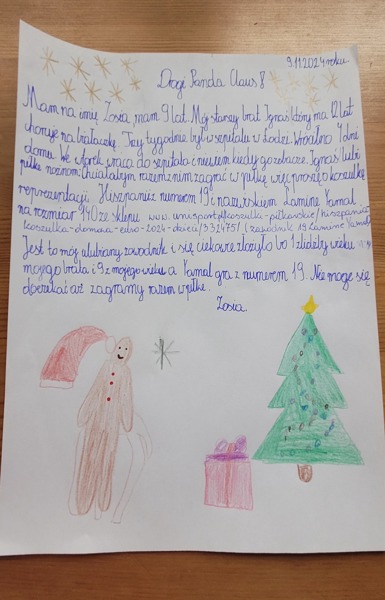 9.11.2024 roku
Drogi Panda Claus!
Mam na imię Zosia, mam 9 lat. Mój starszy brat Ignaś który ma 12 lat
choruje na białaczkę. Trzy tygodnie był w szpitalu w Łodzi. Wróci na 4 dni
domu. We wtorek wraca do szpitala i niewiem kiedy go zobacze. Ignaś lubi
piłkę nożnom. Chciałabym razem z nim zagrać w piłkę więc proszę o koszulkę
reprezendacji Hiszpanii z numerem 19 i nazwiskiem Lamine Yamal
na rozmiar 140 ze sklepu www.unisport.pl/koszulki-piłkarskie/hiszpania-
koszulka-domowa-euro-2024-dzieci/332475/ (zawodnik 19 Lamine Yamal)
Jest to mój ulubiany zawodnik i się ciekawie złożyło bo 1 z liczby wieku
mojego brata i 9 z mojego wieku a Yamal gra z numerem 19. Nie moge się
doczekać aż zagramy razem w piłke.
Zosia.